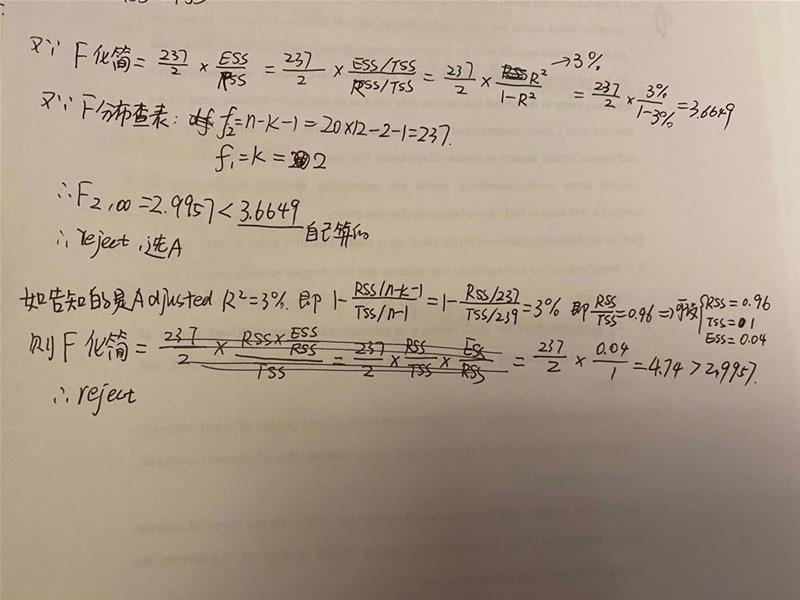 又∵ F化简 = 237/2 × ESS/RSS = 237/2 × ESS/TSS / RSS/TSS = 237/2 × R²/1-R² →3% = 237/2 × 3%/1-3% = 3.6649
又∵ F分布查表: f₂=n-k-1=20×12-2-1=237.
f₁=k=2
∴F₂,∞ =2.9957<3.6649 自己算的
∴reject,选A
如告知的是Adjusted R²=3%. 即 1- RSS/n-k-1 / TSS/n-1 = 1- RSS/237 / TSS/239 =3% 即 RSS/TSS=0.96 ⇒ 可设{RSS=0.96
TSS=1
ESS=0.04
则F化简 = 237/2 × RSS×ESS/RSS / TSS = 237/2 × RSS/TSS × ESS/RSS = 237/2 × 0.04/1 =4.74>2.9957.
∴reject